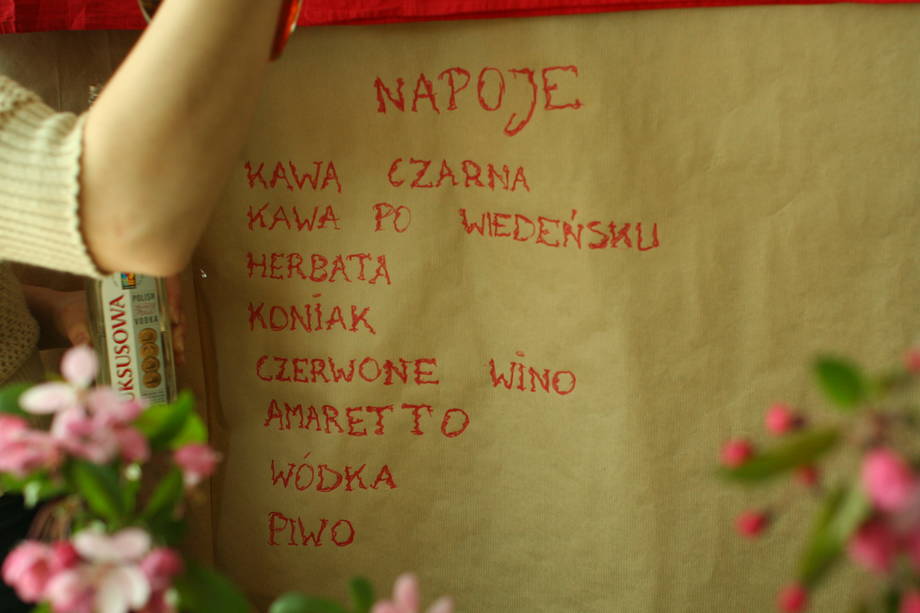 NAPOJE
KAWA CZARNA
KAWA PO WIEDEŃSKU
HERBATA
KONIAK
CZERWONE WINO
AMARETTO
WÓDKA
PIWO
KSUSOWA
POLISH
VODKA